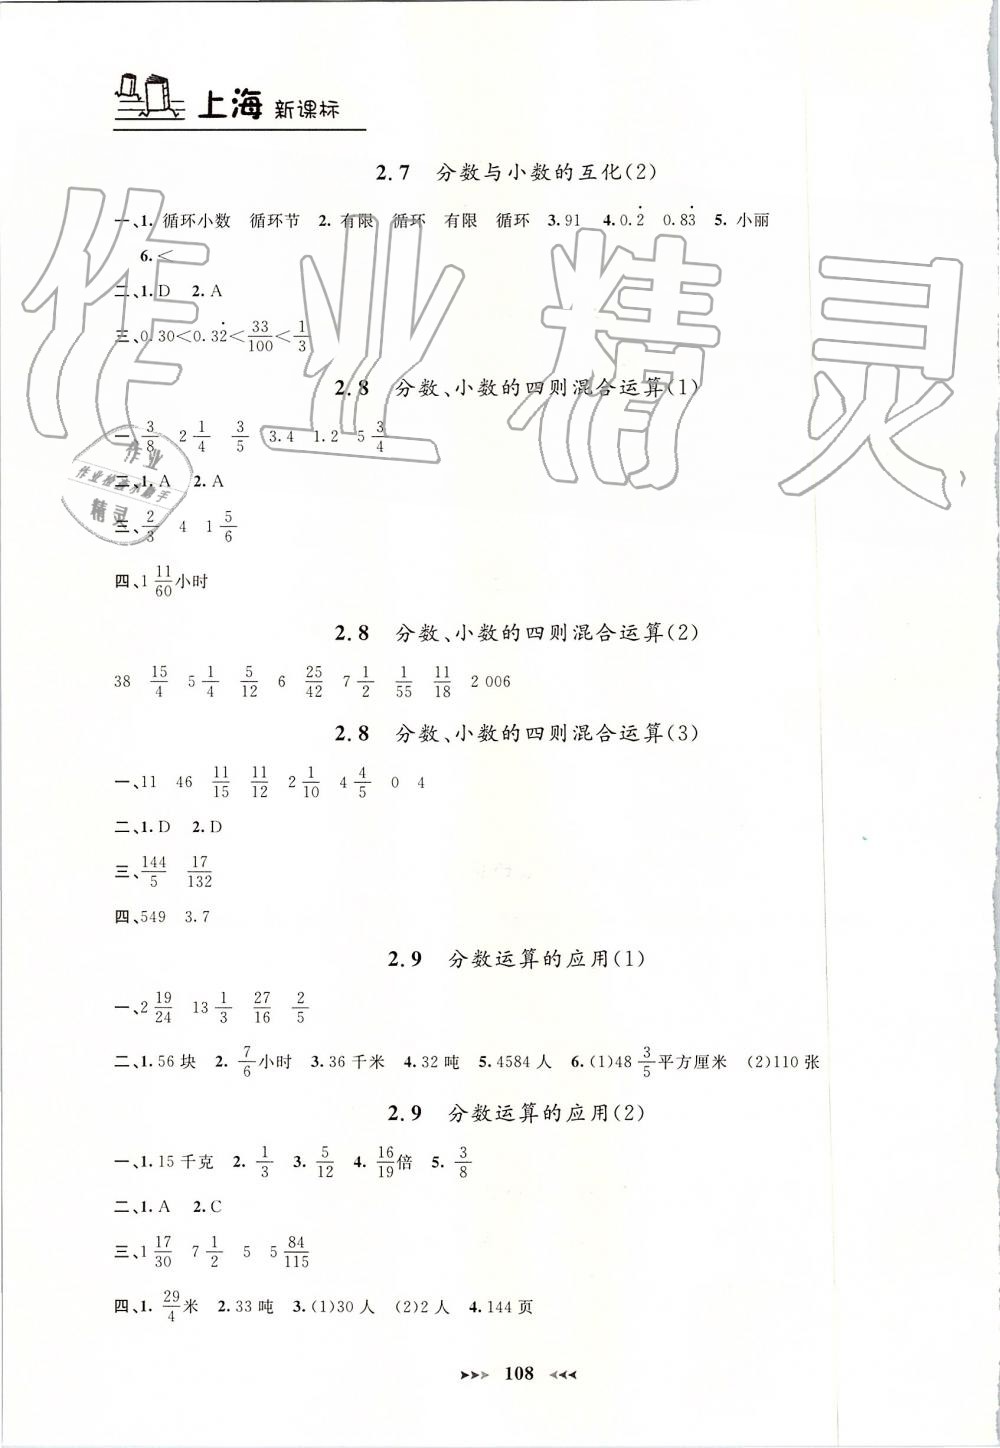 上海 新课标
2.7 分数与小数的互化(2)
一、1. 循环小数 循环节 2. 有限 循环 有限 循环 3. 91 4. 0.2̇ 0.83̇ 5. 小丽
6. <
二、1. D 2. A
三、0.30<0.32̇<33/100<1/3
2.8 分数、小数的四则混合运算(1)
一、3/8 2 1/4 3/5 3.4 1.2 5 3/4
二、1. A 2. A
三、2/3 4 1 5/6
四、1 11/60 小时
2.8 分数、小数的四则混合运算(2)
38 15/4 5 1/4 5/12 6 25/42 7 1/2 1/55 11/18 2 006
2.8 分数、小数的四则混合运算(3)
一、11 46 11/15 11/12 2 1/10 4 4/5 0 4
二、1. D 2. D
三、144/5 17/132
四、549 3.7
2.9 分数运算的应用(1)
一、2 19/24 13 1/3 27/16 2/5
二、1. 56 块 2. 7/6 小时 3. 36 千米 4. 32 吨 5. 4584 人 6. (1)48 3/5 平方厘米 (2)110 张
2.9 分数运算的应用(2)
一、1. 15 千克 2. 1/3 3. 5/12 4. 16/19 倍 5. 3/8
二、1. A 2. C
三、1 17/30 7 1/2 5 5 84/115
四、1. 29/4 米 2. 33 吨 3. (1)30 人 (2)2 人 4. 144 页
108
作业精灵
作业
作业检查小助手
精灵